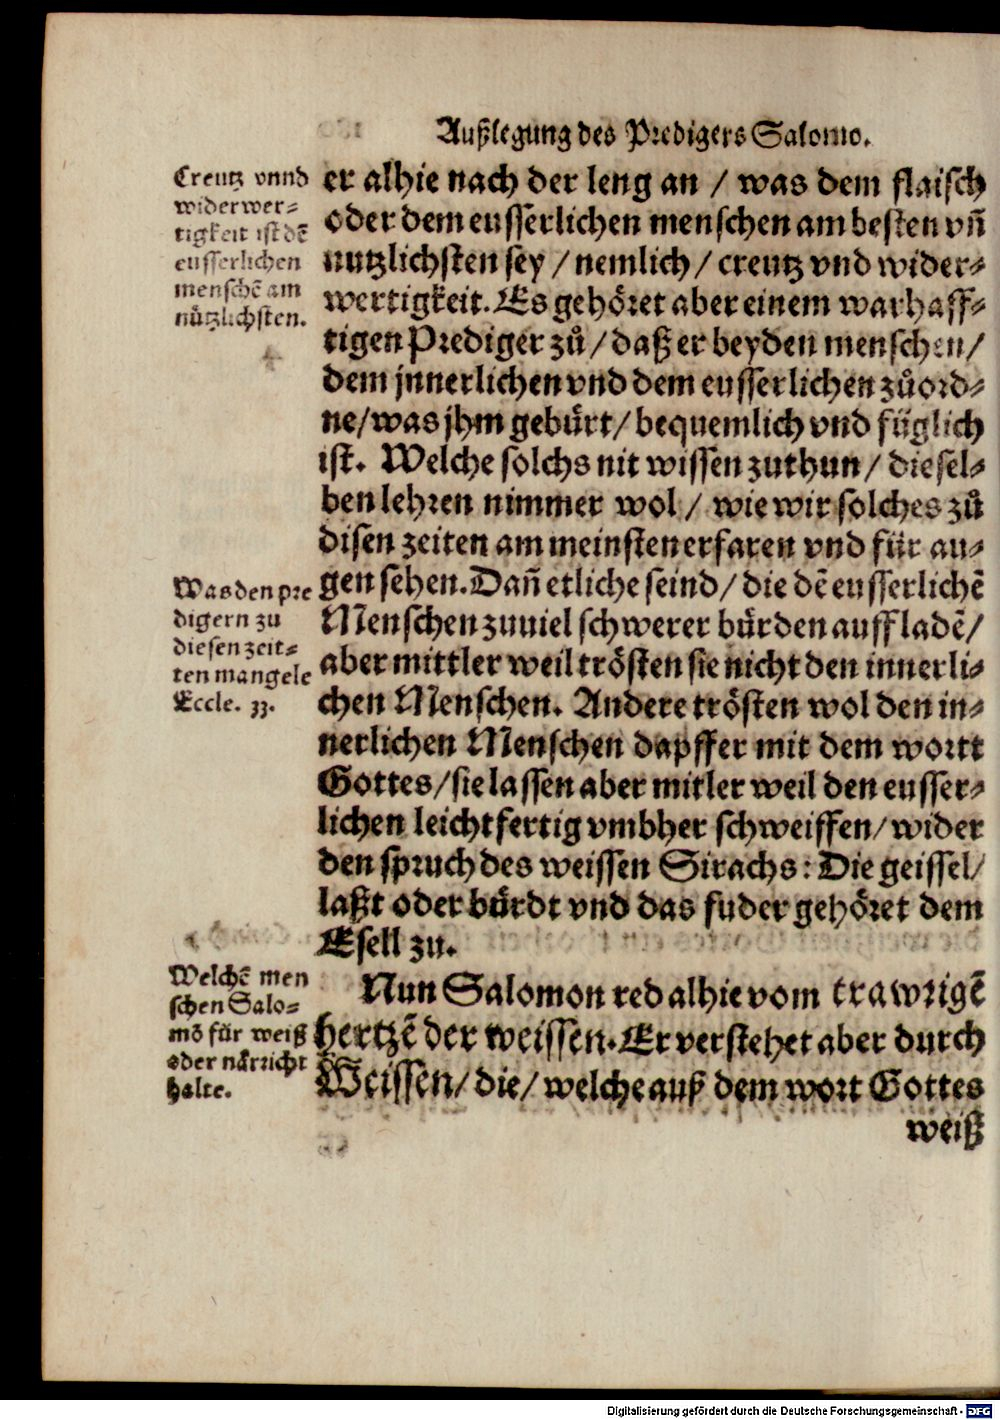 Außlegung des Predigers Salomo.
Creutz vnnd
widerwer-
tigkeit ist dē
eusserlichen
menschē am
nützlichsten.
er alhie nach der leng an / was dem flaisch
oder dem eusserlichen menschen am besten vñ
nutzlichsten sey / nemlich / creutz vnd wider-
wertigkeit. Es gehöret aber einem warhaff-
tigen Prediger zů / daß er beyden menschen /
dem jnnerlichen vnd dem eusserlichen zůord-
ne / was jhm gebürt / bequemlich vnd füglich
ist. Welche solchs nit wissen zuthun / diesel-
ben lehren nimmer wol / wie wir solches zů
disen zeiten am meinsten erfaren vnd für au-
Was den pre
digern zu
diesen zeit-
ten mangele
Eccle. 33.
gen sehen. Dañ etliche seind / die dē eusserlichē
Menschen zuuiel schwerer bürden auffladē /
aber mittler weil trösten sie nicht den innerli-
chen Menschen. Andere trösten wol den in-
nerlichen Menschen dapffer mit dem wortt
Gottes / sie lassen aber mitler weil den eusser-
lichen leichtfertig vmbher schweiffen / wider
den spruch des weissen Sirachs: Die geissel /
laßt oder bürdt vnd das fuder gehöret dem
Esell zu.
Welchē men
schen Salo-
mō für weiß
oder närricht
halte.
Nun Salomon red alhie vom trawrigē
hertzē der weissen. Er verstehet aber durch
Weissen / die / welche auß dem wort Gottes
weiß
Digitalisierung gefördert durch die Deutsche Forschungsgemeinschaft - DFG